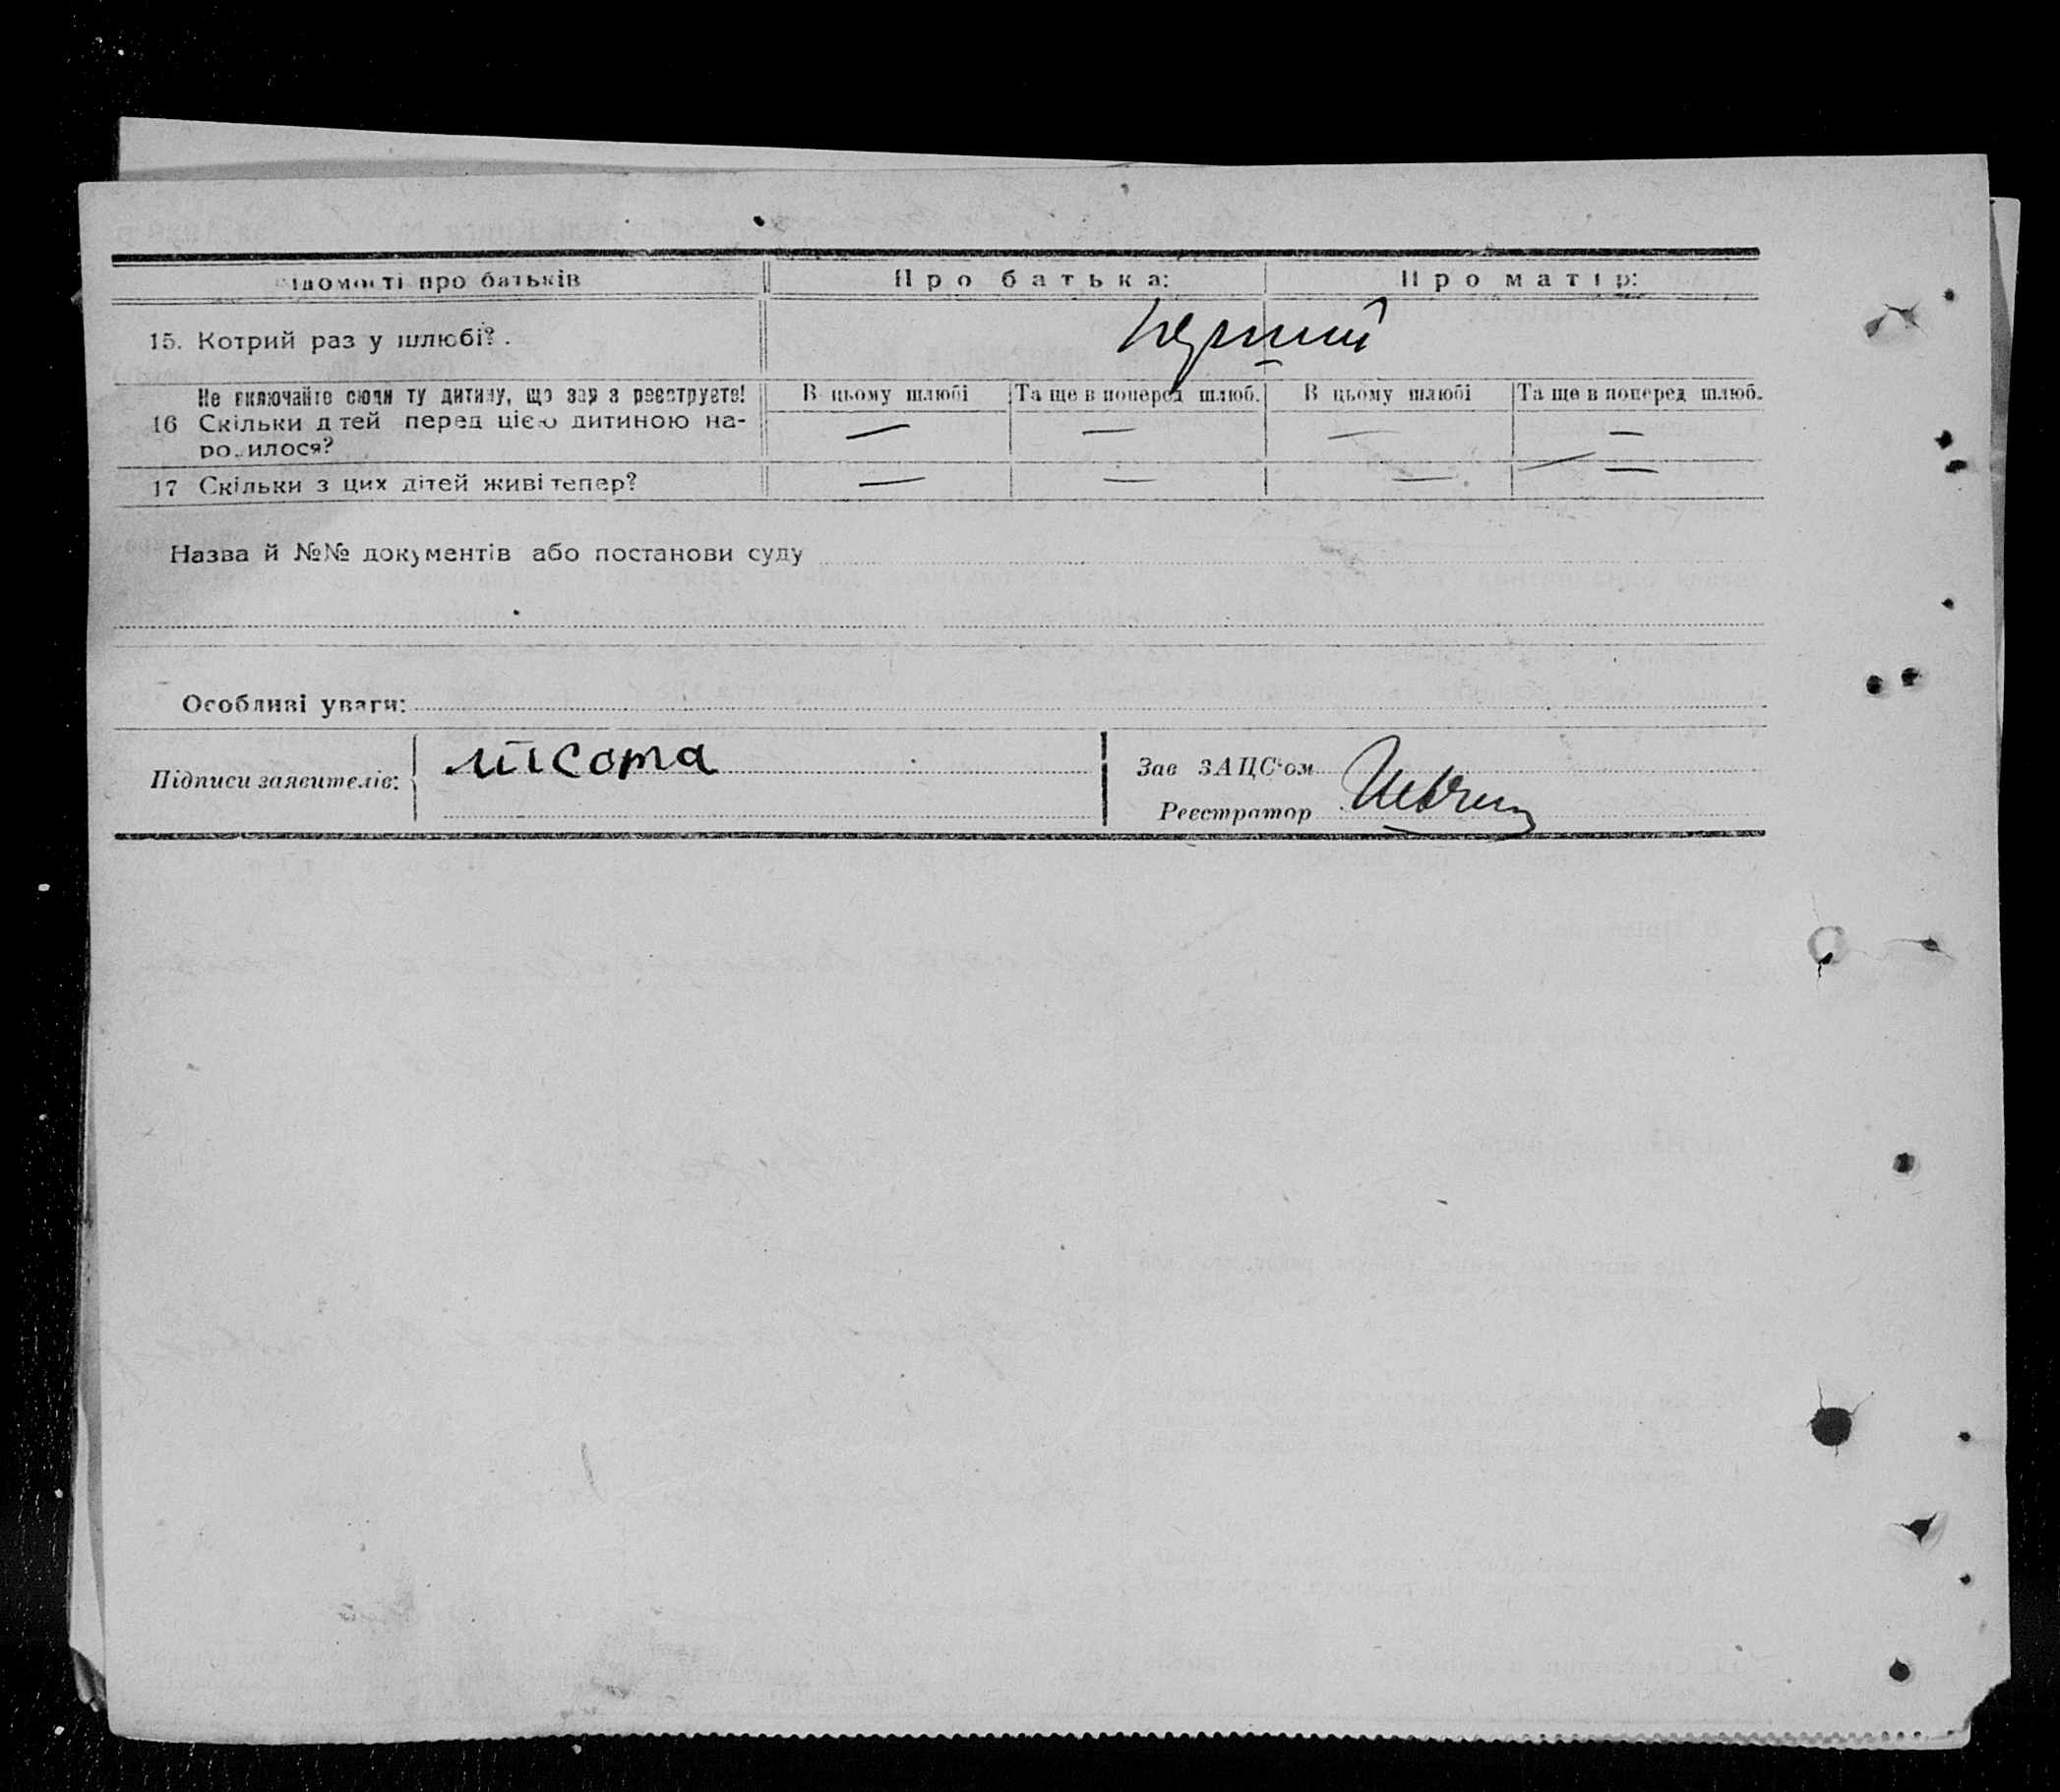 ідомості про батьків Про батька: Про матір:
15. Котрий раз у шлюбі?. перший
Не включайте сюди ту дитину, що зар з реєструєте! В цьому шлюбі Та ще в поперед шлюб. В цьому шлюбі Та ще в поперед шлюб.
16 Скільки д тей перед цією дитиною на- — — — —
ро.илося?
17 Скільки з цих дітей живі тепер? — — — —
Назва й №№ документів або постанови суду
Особливі уваги:
Підписи заявителів:
Зав ЗАЦС'ом
Реєстратор